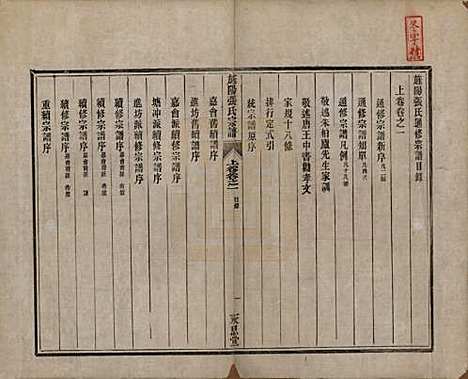 旌陽張氏通修宗譜目錄
上卷卷之一
通修宗譜新序 凡二篇
通修宗譜知單
通修宗譜凡例 凡十九條
敬述朱柏廬先生家訓
敬述唐王中書勸孝文
家規十八條
排行定式引
統宗譜原序
旌陽張氏宗譜
上卷卷之一
目錄
一
永思堂
嘉會舊譜序
譙坊舊續譜序
嘉會派續修宗譜序
塘冲派續修宗譜序
譙坊派續修宗譜序
續修宗譜序
續修宗譜序
續修宗譜序
重續宗譜序